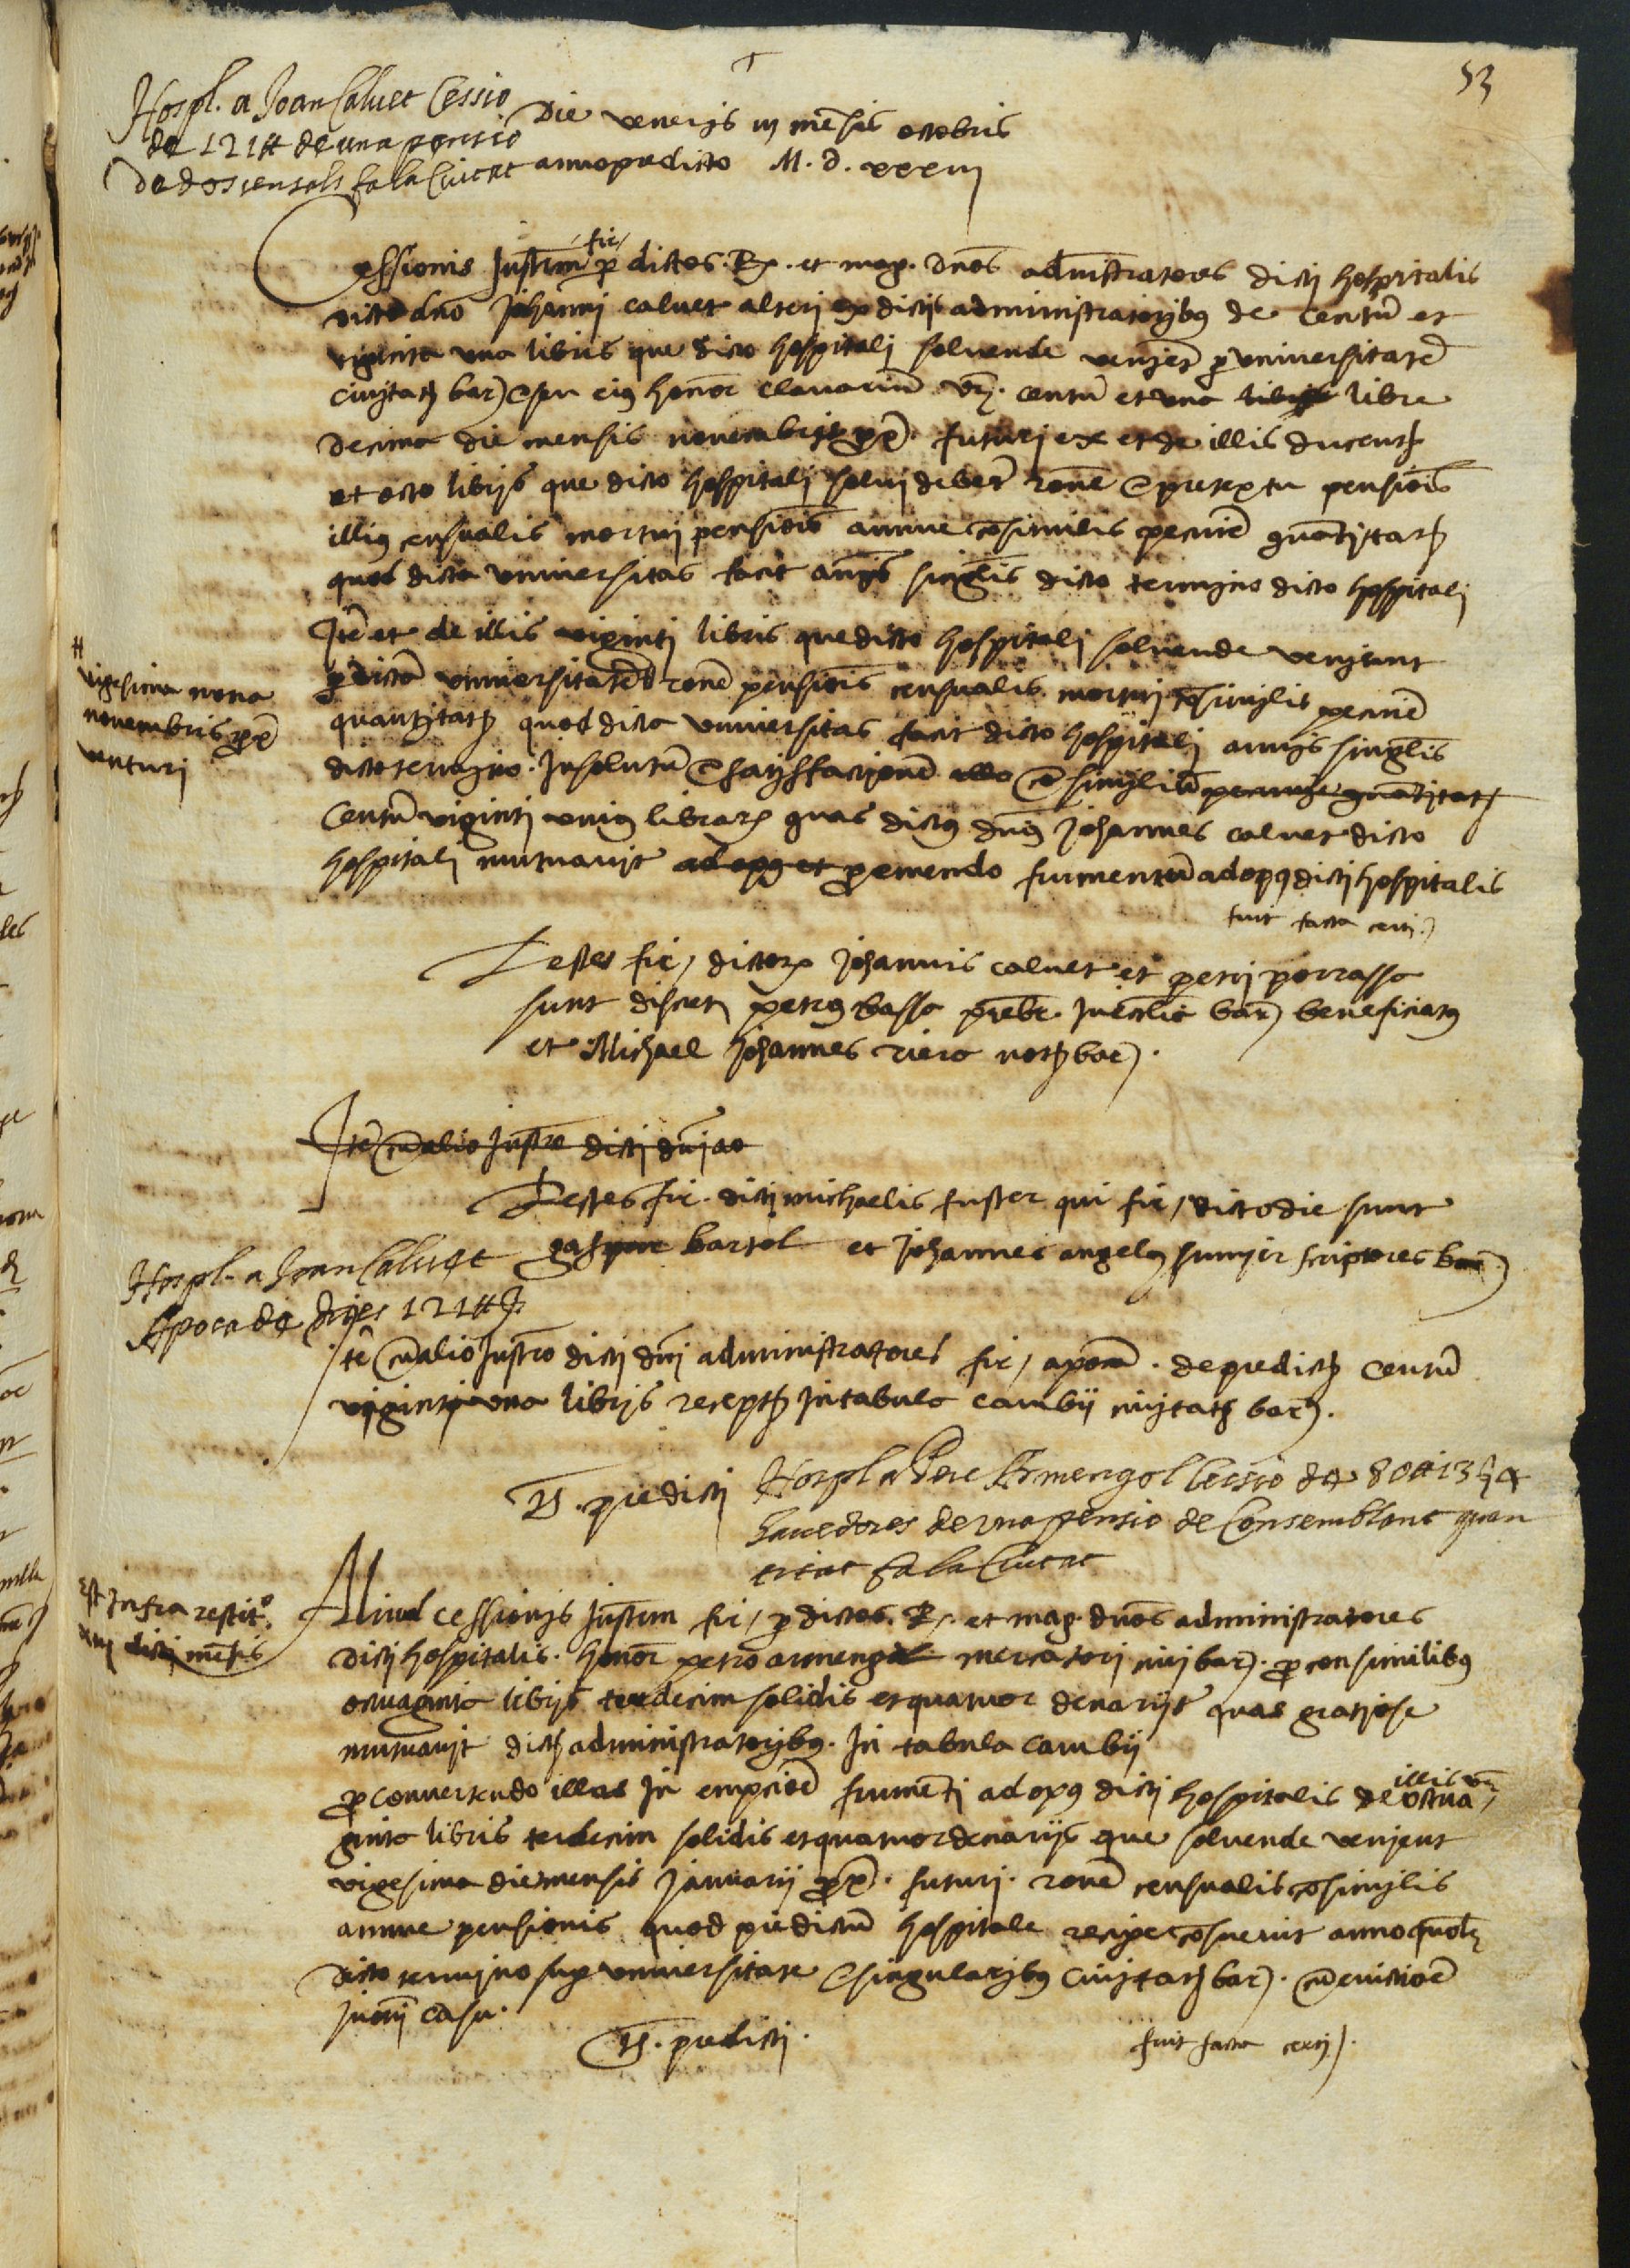 53
Hospl. a Joan Calvet Cessio
de 121 ll de una pensio
de dos censals fa la Ciutat
Die veneris iij mēsis octobris
anno predicto M. D. xxxiij
Cessionis Instrm fir/ p dictos. R. et mag. dnos administratores dicti hospitalis
dicto dno Johanni calvet alteri ex dictis administratoribus de centū et
viginta una libris que dicto hospitali solvende veniēt p universitatē
civitatis bar) seu eius honor clavariū vz. centū et una libre
decima die mensis novembris px. futuri ex et de illis ducentis
et octo libris que dicto hospitali solvi debēt ronē et pretextu pensiois
illius censualis mortui pensiois annue cosimilis pecunie quātitatis
quod dicta universitas facit annis singlis dicto termino dicto hospitali
Itē et de illis viginti libris que dicto hospitali solvende veniunt
#
vigesima nona
novembris px
venturi
p dictā universitatē ronē pensiois censualis mortui cosimilis pecunie
quantitatis quod dicta universitas facit dicto hospitali annis singlis
dicto termino. In solutū et satisfactionē cosimiliū pecunie quātitatis
Centū viginti unius librar quas dictus dns Johannes calvet dicto
hospitali mutuavit ad opus et p emendo frumentū ad opus dicti hospitalis
fuit facta certi.)
Testes fir/ dictor Johannis calvet et petri porrassa
sunt discreti petrus bassa prebr. In ecclia bar) beneficiatus
et Michael Johannes riera notus bar).
Itē cū alio Instro dicti dni ad
Testes fir. dicti michaelis fuster qui fir/ dicto die sunt
gaspar bartol et Johannes angelus scriptores bar)
Hospl. a Joan Calvet
Apoca de dites 121 ll
Itē cū alio Instro dicti dni administratores fir/ apocā. de predictis centū
viginti una libris receptis In tabula cambii civitatis bar).
Ts. predicti
Hospl a Pere Armengol Cessio de 80 ll 13 s 4
havedores de una pensio de Consemblant quan
titat fa la Ciutat
Est Infra restit.
dicti mēsis
Aliud cessionis Instrm fir/ p dictos. R. et mag. dnos administratores
dicti hospitalis. honor petro armengol mercatori civi bar). p consimilibus
octuaginta libris terdecim solidis et quatuor denariis quas gratiose
mutuavit dictis administratoribus. In tabula cambii
p convertendo illas In empcioē frumēti ad opus dicti hospitalis de illis vz octua/
ginta libris terdecim solidis et quatuor denariis que solvende venient
vigesima die mensis Januarii px. futuri. ronē censualis cosimilis
annue pensionis quod predictū hospitale recipe cosuevit anno quolz
dicto termino sup universitate et singularibus civitatis bar). cū evictioē
In oni casu.
Ts. predicti.
fuit facta certi).